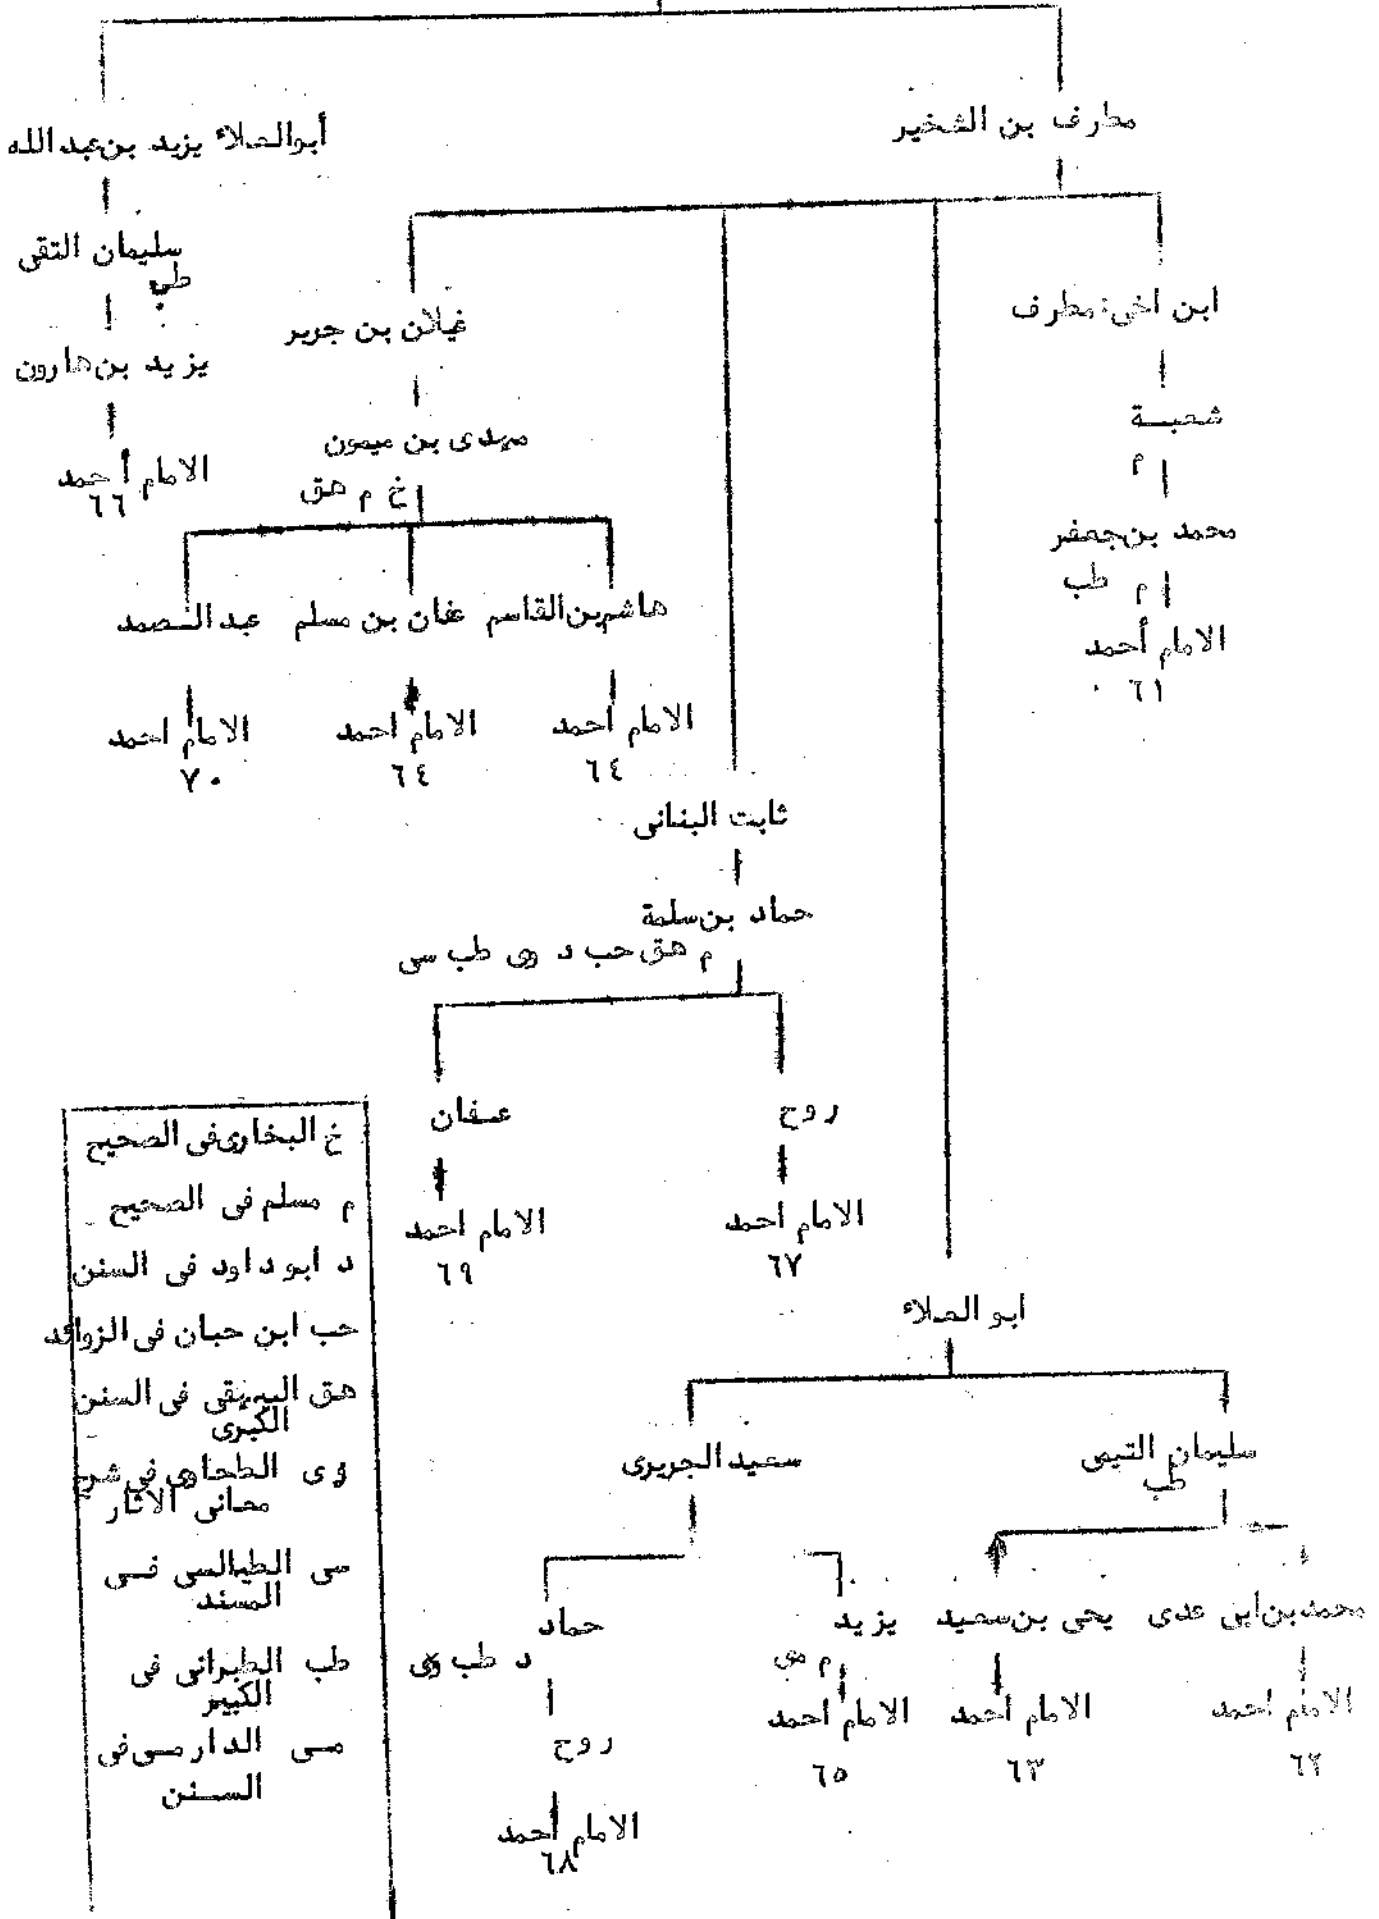 مطرف بن الشخير
أبو العلاء يزيد بن عبد الله
سليمان التقى
طب
يزيد بن هارون
الامام أحمد
٦٦
غيلان بن جرير
مهدى بن ميمون
خ م هق
هاشم بن القاسم
عفان بن مسلم
عبد الصمد
الامام أحمد
٦٤
الامام احمد
٦٤
الامام احمد
٧٠
ابن اخى مطرف
شعبة
م
محمد بن جعفر
م طب
الامام أحمد
٦١
ثابت البنانى
حماد بن سلمة
م هق حب د وى طب سى
روح
عفان
الامام احمد
٦٧
الامام احمد
٦٩
ابو العلاء
سليمان التيمى
طب
سعيد الجريرى
محمد بن ابى عدى
يحى بن سعيد
يزيد
م
حماد
د طب وى
الامام احمد
٦٢
الامام أحمد
٦٣
الامام أحمد
٦٥
روح
الامام أحمد
٦٨
خ البخارى فى الصحيح
م مسلم فى الصحيح
د ابو داود فى السنن
حب ابن حبان فى الزوائد
هق البيهقى فى السنن
الكبرى
وى الطحاوى فى شرح
معانى الاثار
سى الطيالسى فى
المسند
طب الطبرانى فى
الكبير
مى الدارمى فى
السنن